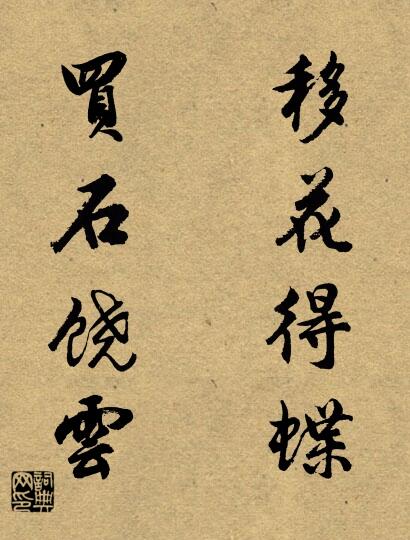 移花得蝶
買石饒雲
詞典网印